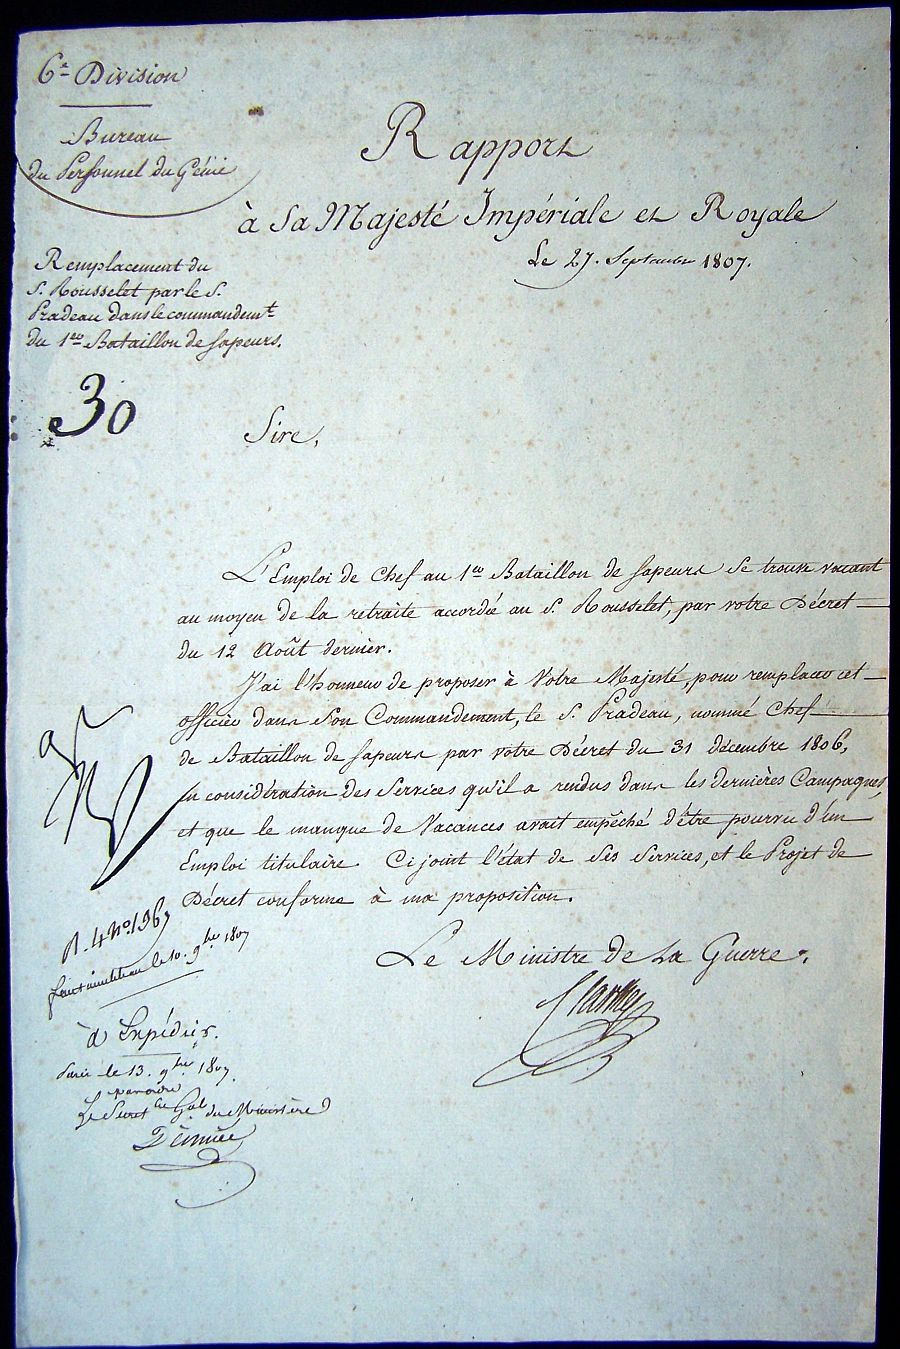 6e Division
Bureau
du Personnel du Génie
Rapport
à Sa Majesté Impériale et Royale
Le 27. Septembre 1807.
Remplacement du
S. Rousselet par le S.
Pradeau dans le commandemt
du 1er Bataillon de Sapeurs.
30
Sire,
L'Emploi de Chef au 1er Bataillon de Sapeurs Se trouve vacant
au moyen de la retraite accordée au S. Rousselet, par votre Décret
du 12 Août dernier.
J'ai l'honneur de proposer à Votre Majesté, pour remplacer cet
officier dans Son Commandement, le S. Pradeau, nommé Chef
de Bataillon de Sapeurs par votre Décret du 31 décembre 1806,
en considération des Services qu'il a rendus dans les dernières Campagnes,
et que le manque de Vacances avait empêché d'être pourvu d'un
Emploi titulaire. Ci joint l'état de Ses Services, et le Projet de
Décret conforme à ma proposition.
Le Ministre de la Guerre.
Clarke
A. 4 No. 1367
fontainebleau le 10. 9bre 1807
à Expédier.
Paris le 13. 9bre 1807.
par ordre
Le Secret re Gal du Ministère
Denniée